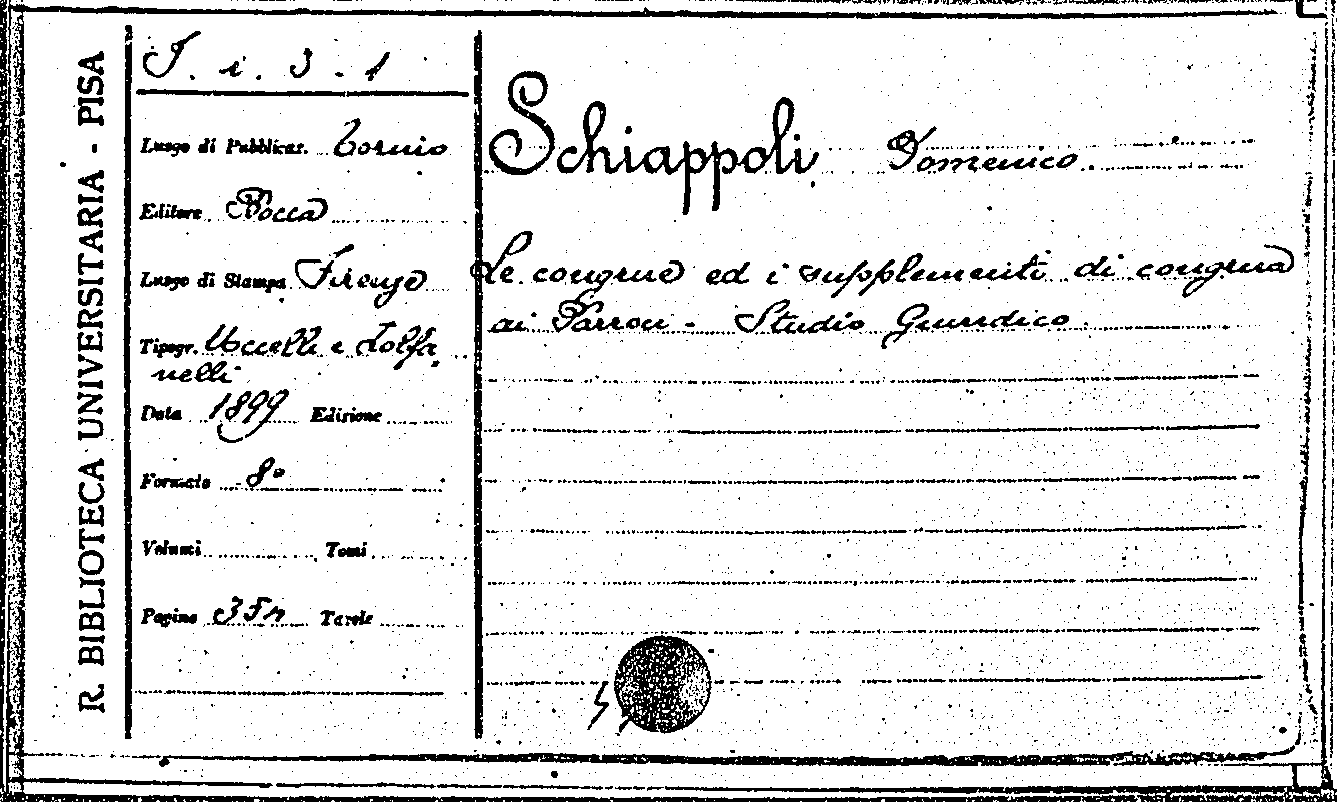 R. BIBLIOTECA UNIVERSITARIA - PISA
T. i. 3. 1
Luogo di Pubblicaz. Torino
Editore Bocca
Luogo di Stampa Firenze
Tipogr. Uccelli e Zolfa
nelli
Data 1899 Edizione
Formato 8°
Volumi Tomi
Pagine Tavole
Schiappoli Domenico
Le congrue ed i supplementi di congrua
ai Parroci - Studio Giuridico